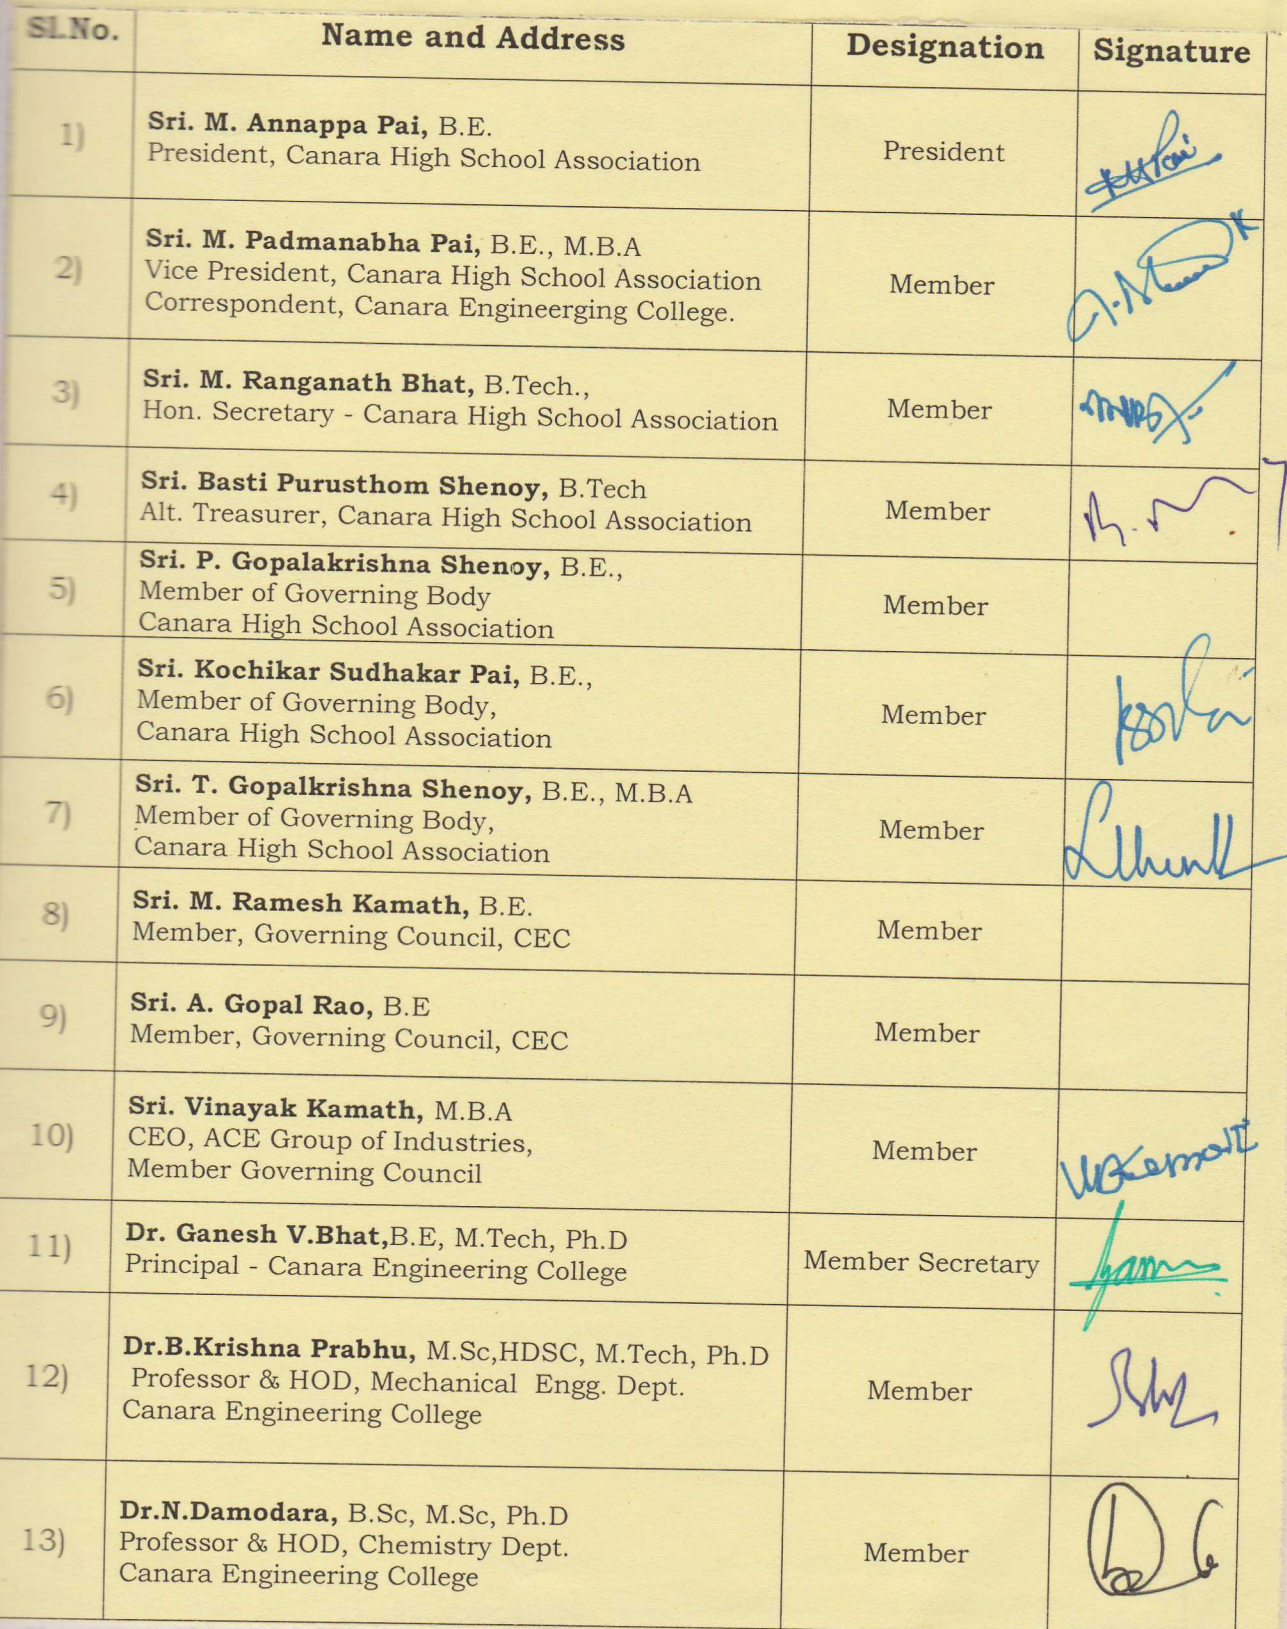 Sl.No. Name and Address Designation Signature
1) Sri. M. Annappa Pai, B.E.
President, Canara High School Association
President
2) Sri. M. Padmanabha Pai, B.E., M.B.A
Vice President, Canara High School Association
Correspondent, Canara Engineerging College.
Member
3) Sri. M. Ranganath Bhat, B.Tech.,
Hon. Secretary - Canara High School Association
Member
4) Sri. Basti Purusthom Shenoy, B.Tech
Alt. Treasurer, Canara High School Association
Member
5) Sri. P. Gopalakrishna Shenoy, B.E.,
Member of Governing Body
Canara High School Association
Member
6) Sri. Kochikar Sudhakar Pai, B.E.,
Member of Governing Body,
Canara High School Association
Member
7) Sri. T. Gopalkrishna Shenoy, B.E., M.B.A
Member of Governing Body,
Canara High School Association
Member
8) Sri. M. Ramesh Kamath, B.E.
Member, Governing Council, CEC
Member
9) Sri. A. Gopal Rao, B.E
Member, Governing Council, CEC
Member
10) Sri. Vinayak Kamath, M.B.A
CEO, ACE Group of Industries,
Member Governing Council
Member
11) Dr. Ganesh V.Bhat,B.E, M.Tech, Ph.D
Principal - Canara Engineering College
Member Secretary
12) Dr.B.Krishna Prabhu, M.Sc,HDSC, M.Tech, Ph.D
Professor & HOD, Mechanical Engg. Dept.
Canara Engineering College
Member
13) Dr.N.Damodara, B.Sc, M.Sc, Ph.D
Professor & HOD, Chemistry Dept.
Canara Engineering College
Member